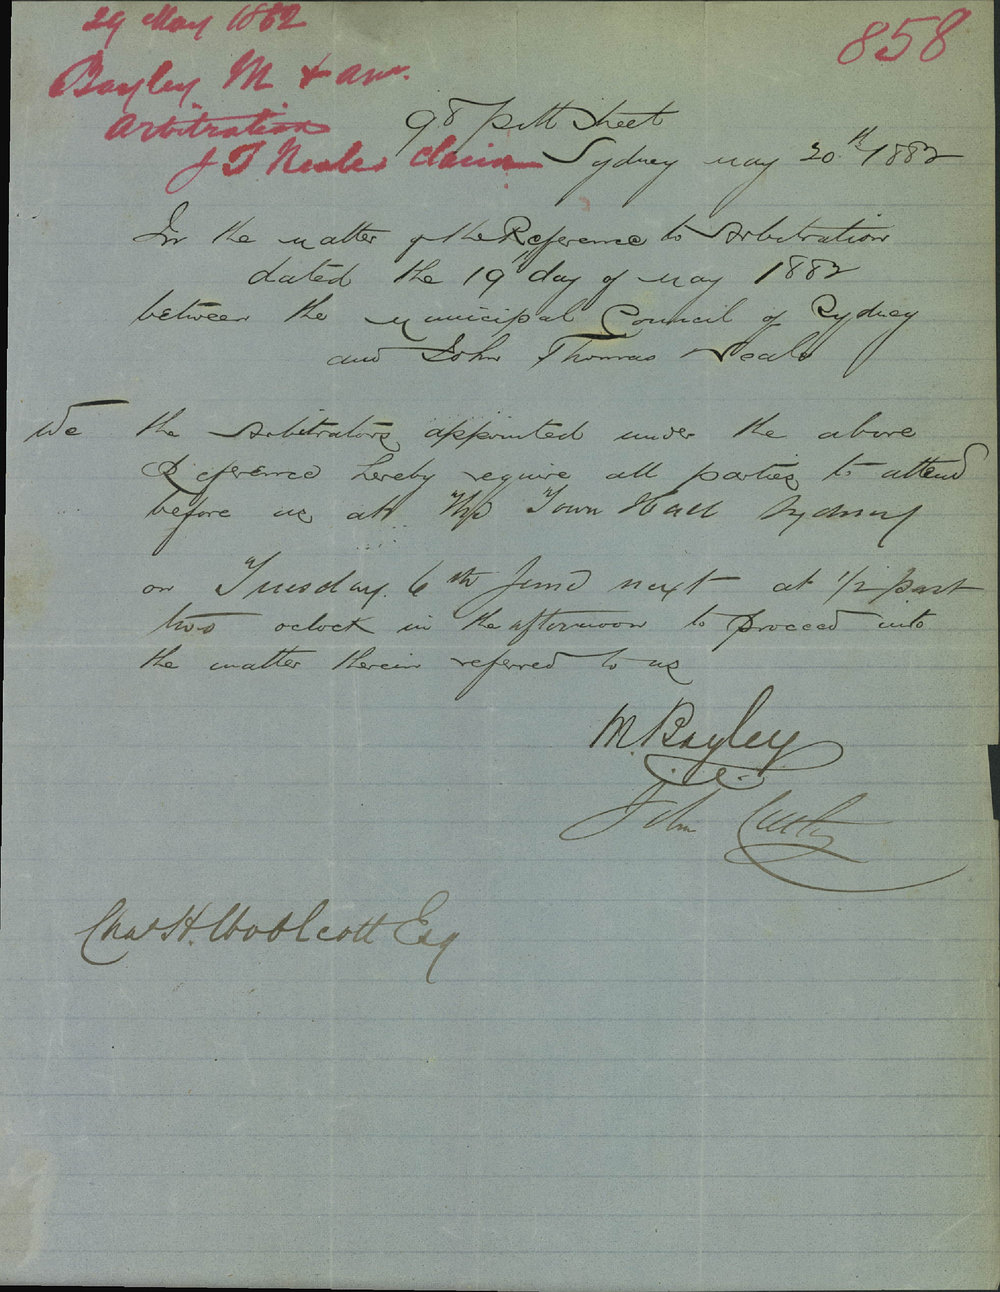 29 May 1882
858
Bayley M & anr.
Arbitration
J T Neales Claim
98 Pitt Street
Sydney May 20th 1882
In the matter of the Reference to Arbitration
dated the 19th day of May 1882
between the Municipal Council of Sydney
and John Thomas Neale
We the Arbitrators appointed under the above
Reference hereby require all parties to attend
before us at The Town Hall Sydney
on Tuesday 6th June next at 1/2 past
two oclock in the afternoon to proceed into
the matter therein referred to us
M. Bayley
John
Chas H. Woolcott Esq